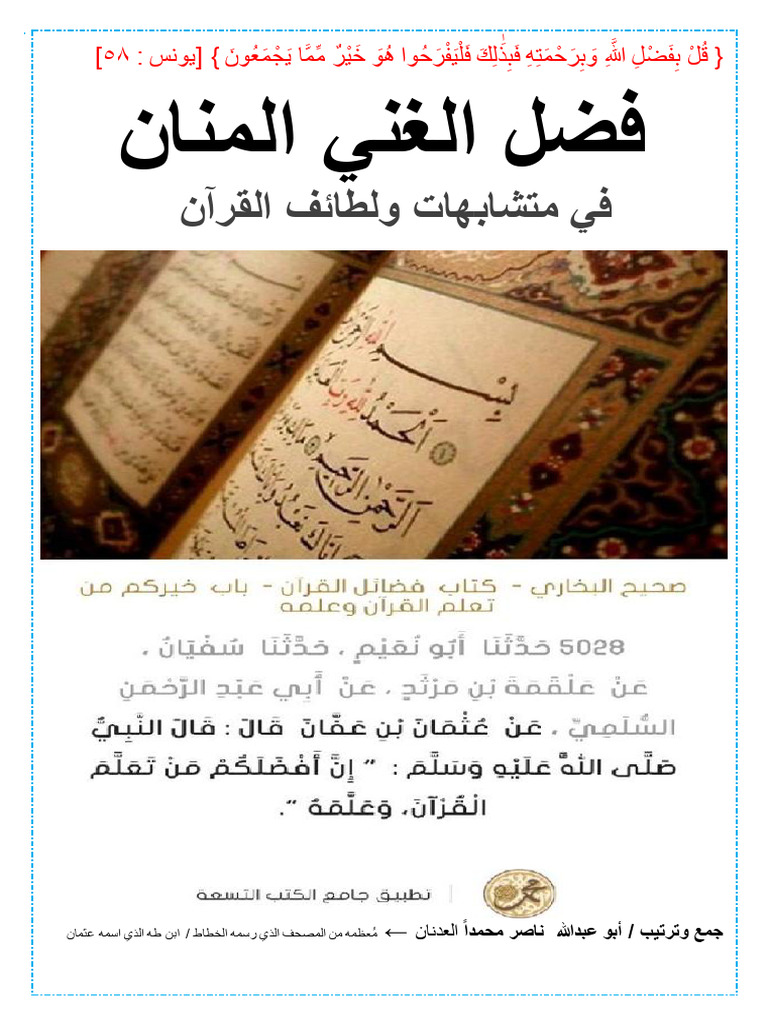 { قُلْ بِفَضْلِ اللَّهِ وَبِرَحْمَتِهِ فَبِذَٰلِكَ فَلْيَفْرَحُوا هُوَ خَيْرٌ مِّمَّا يَجْمَعُونَ } [يونس : ٥٨]
فضل الغني المنان
في متشابهات ولطائف القرآن
بِسْمِ اللهِ الرَّحْمٰنِ
الْحَمْدُ لِلّٰهِ رَبِّ
الرَّحْمٰنِ الرَّحِيمِ
إِيَّاكَ نَعْبُدُ
صحيح البخاري - كتاب فضائل القرآن - باب خيركم من
تعلم القرآن وعلمه
5028 حَدَّثَنَا أَبُو نُعَيْمٍ ، حَدَّثَنَا سُفْيَانُ ،
عَنْ عَلْقَمَةَ بْنِ مَرْثَدٍ ، عَنْ أَبِي عَبْدِ الرَّحْمَنِ
السُّلَمِيِّ ، عَنْ عُثْمَانَ بْنِ عَفَّانَ قَالَ : قَالَ النَّبِيُّ
صَلَّى اللَّهُ عَلَيْهِ وَسَلَّمَ : " إِنَّ أَفْضَلَكُمْ مَنْ تَعَلَّمَ
الْقُرْآنَ، وَعَلَّمَهُ ".
محمد | تطبيق جامع الكتب التسعة
جمع وترتيب / أبو عبدالله ناصر محمداً العدنان ← مُعظمه من المصحف الذي رسمه الخطاط / ابن طه الذي اسمه عثمان